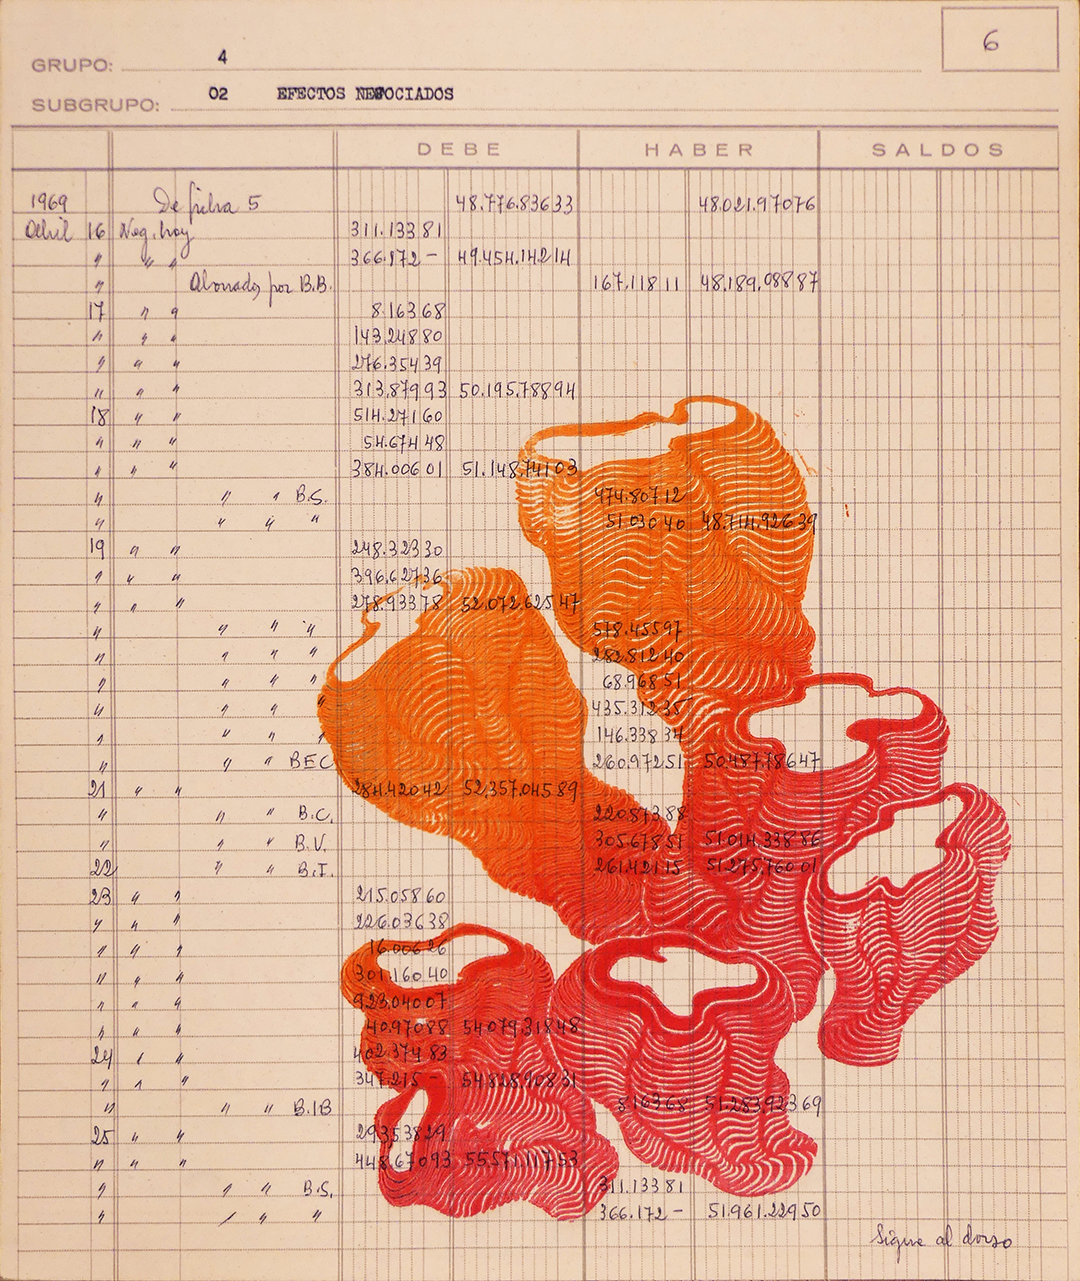 6
GRUPO: 4
SUBGRUPO: 02 EFECTOS NEGOCIADOS
DEBE HABER SALDOS
1969 De ficha 5 48.776.836 33 48.021.970 76
Abril 16 Neg. hoy 311.133 81
" " " 366.172 - 49.454.142 14
" Abonados por B.B. 167.118 11 48.189.088 87
17 " " 8.163 68
" " " 143.248 80
" " " 276.354 39
" " " 313.879 93 50.195.788 94
18 " " 514.271 60
" " " 54.674 48
" " " 384.006 01 51.148.741 03
" " " B.S. 474.807 12
" " " " 51.030 40 48.714.926 39
19 " " 248.323 30
" " " 396.627 36
" " " 278.933 78 52.072.625 47
" " " " 578.455 97
" " " " 282.812 40
" " " " 68.968 51
" " " " 435.312 35
" " " " 146.338 34
" " " BEC 260.972 51 50.487.786 47
21 " " 284.420 42 52.357.045 89
" " " B.C. 220.873 88
" " " B.V. 305.678 51 51.014.338 86
22 " " B.I. 261.421 15 51.275.760 01
23 " " 215.058 60
" " " 226.036 38
" " " 16.006 26
" " " 301.160 40
" " " 923.040 07
" " " 40.970 88 54.079.318 48
24 " " 402.374 83
" " " 347.215 - 54.828.908 31
" " " B.IB 8.163 68 51.283.923 69
25 " " 293.538 29
" " " 448.670 93 55.571.117 53
" " " B.S. 311.133 81
" " " " 366.172 - 51.961.229 50
Sigue al dorso